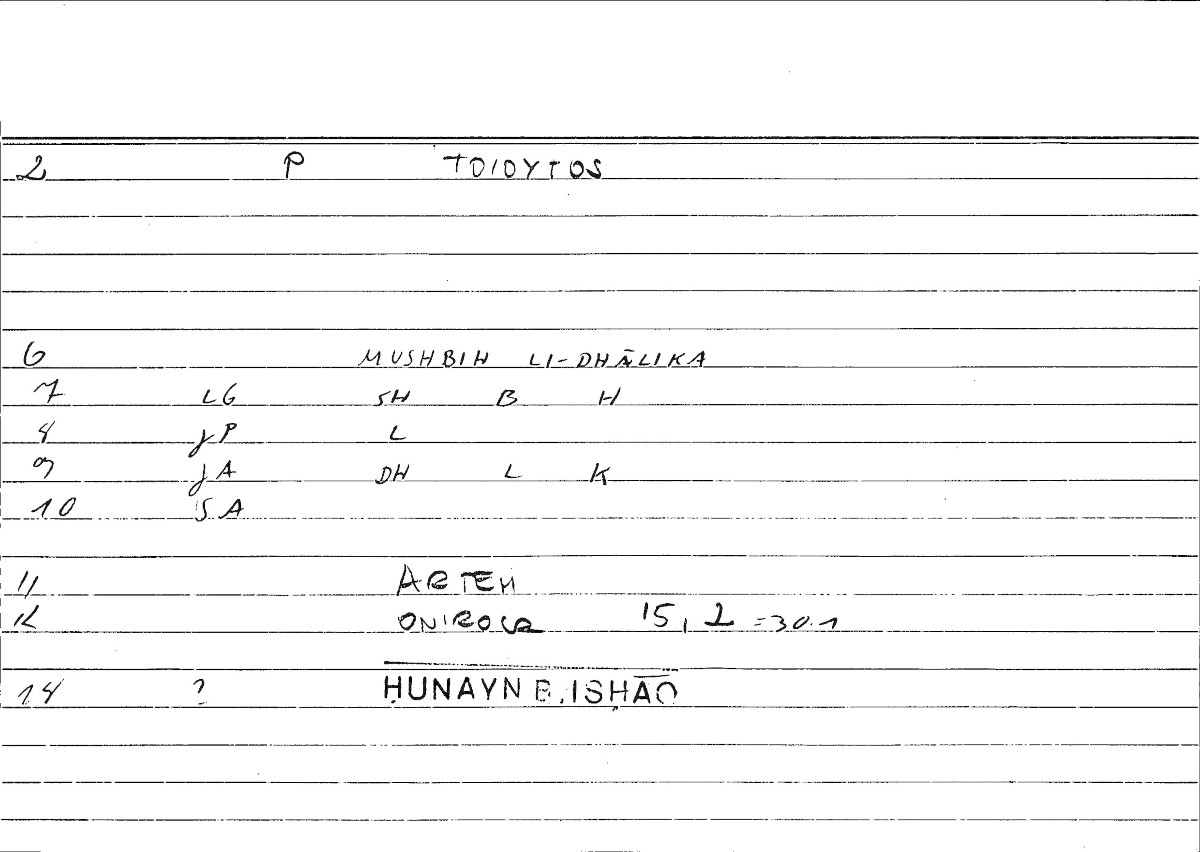 2 P TOIOYTOS
6 MUSHBIH LI-DHĀLIKA
7 LG SH B H
8 JP L
9 JA DH L K
10 SA
11 ARTEM
12 ONIROCR 15,2 =30.1
14 ? ḤUNAYN B. ISḤĀQ